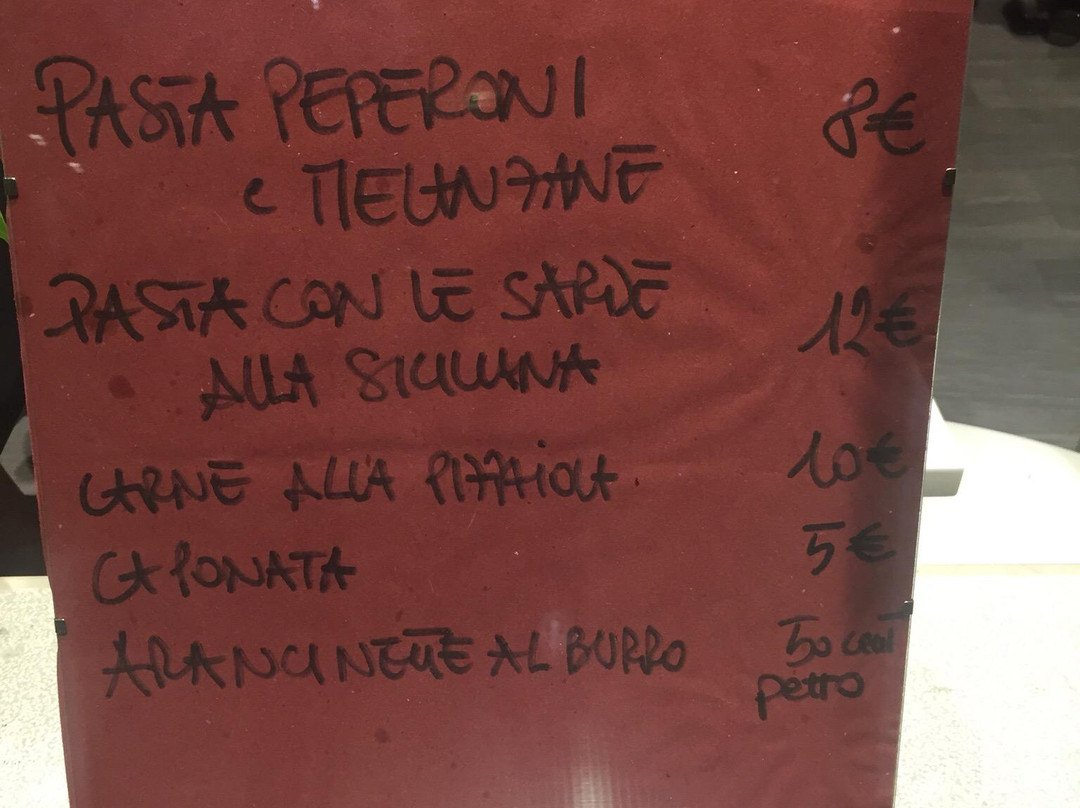 PASTA PEPERONI 8€
e MELANZANE
PASTA CON LE SARDE
ALLA SICILIANA 12€
CARNE ALLA PIZZAIOLA 10€
CAPONATA 5€
ARANCINETTE AL BURRO 50 cent
pezzo